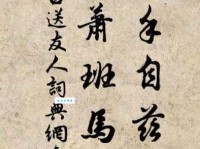 手自茲
蕭班馬
白送友人詞典網